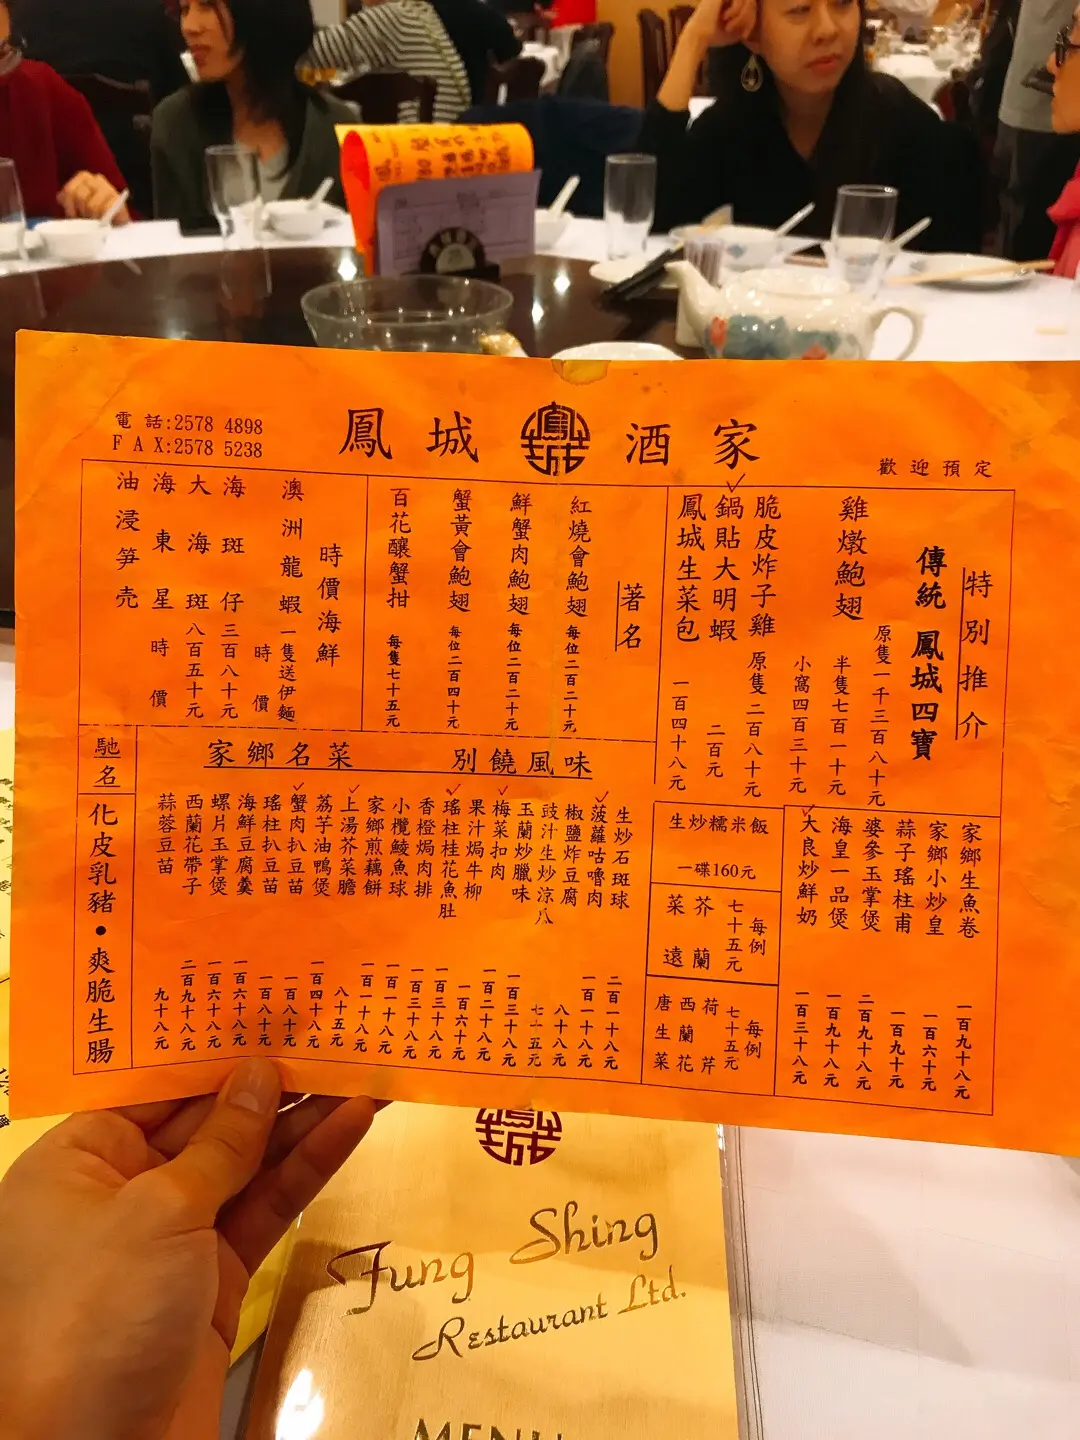 電話:2578 4898
FAX:2578 5238
鳳城酒家
歡迎預定
特別推介
傳統 鳳城四寶
雞燉鮑翅 原隻一千三百八十元
半隻七百一十元
小窩四百三十元
脆皮炸子雞 原隻二百八十元
鍋貼大明蝦 二百元
鳳城生菜包 一百四十八元
著名
紅燒會鮑翅 每位二百二十元
鮮蟹肉鮑翅 每位二百二十元
蟹黃會鮑翅 每位二百四十元
百花釀蟹拑 每隻七十五元
時價海鮮
澳洲龍蝦 一隻送伊麵 時價
海斑仔 三百八十元
大海斑 八百五十元
海東星 時價
油浸笋壳
家鄉生魚卷 一百九十八元
家鄉小炒皇 一百六十元
蒜子瑤柱甫 一百九十元
婆參玉掌煲 二百九十八元
海皇一品煲 一百九十八元
大良炒鮮奶 一百三十八元
生炒糯米飯
一碟160元
芥蘭
菜遠
每例七十五元
荷芹
西蘭花
唐生菜
每例七十五元
家鄉名菜 別饒風味
生炒石斑球 二百一十八元
菠蘿咕嚕肉 一百一十八元
椒鹽炸豆腐 八十八元
豉汁生炒涼瓜 七十五元
玉蘭炒臘味 一百三十八元
梅菜扣肉 一百二十八元
果汁焗牛柳 一百六十元
瑤柱桂花魚肚 一百三十八元
香橙焗肉排 一百三十八元
小欖鯪魚球 一百一十八元
家鄉煎藕餅 一百一十八元
上湯芥菜膽 八十五元
荔芋油鴨煲 一百四十八元
蟹肉扒豆苗 一百八十元
瑤柱扒豆苗 一百八十元
海鮮豆腐羹 一百六十八元
螺片玉掌煲 一百六十八元
西蘭花帶子 二百九十八元
蒜蓉豆苗 九十八元
馳名
化皮乳豬•爽脆生腸
鳳城
Fung Shing
Restaurant Ltd.
MENU